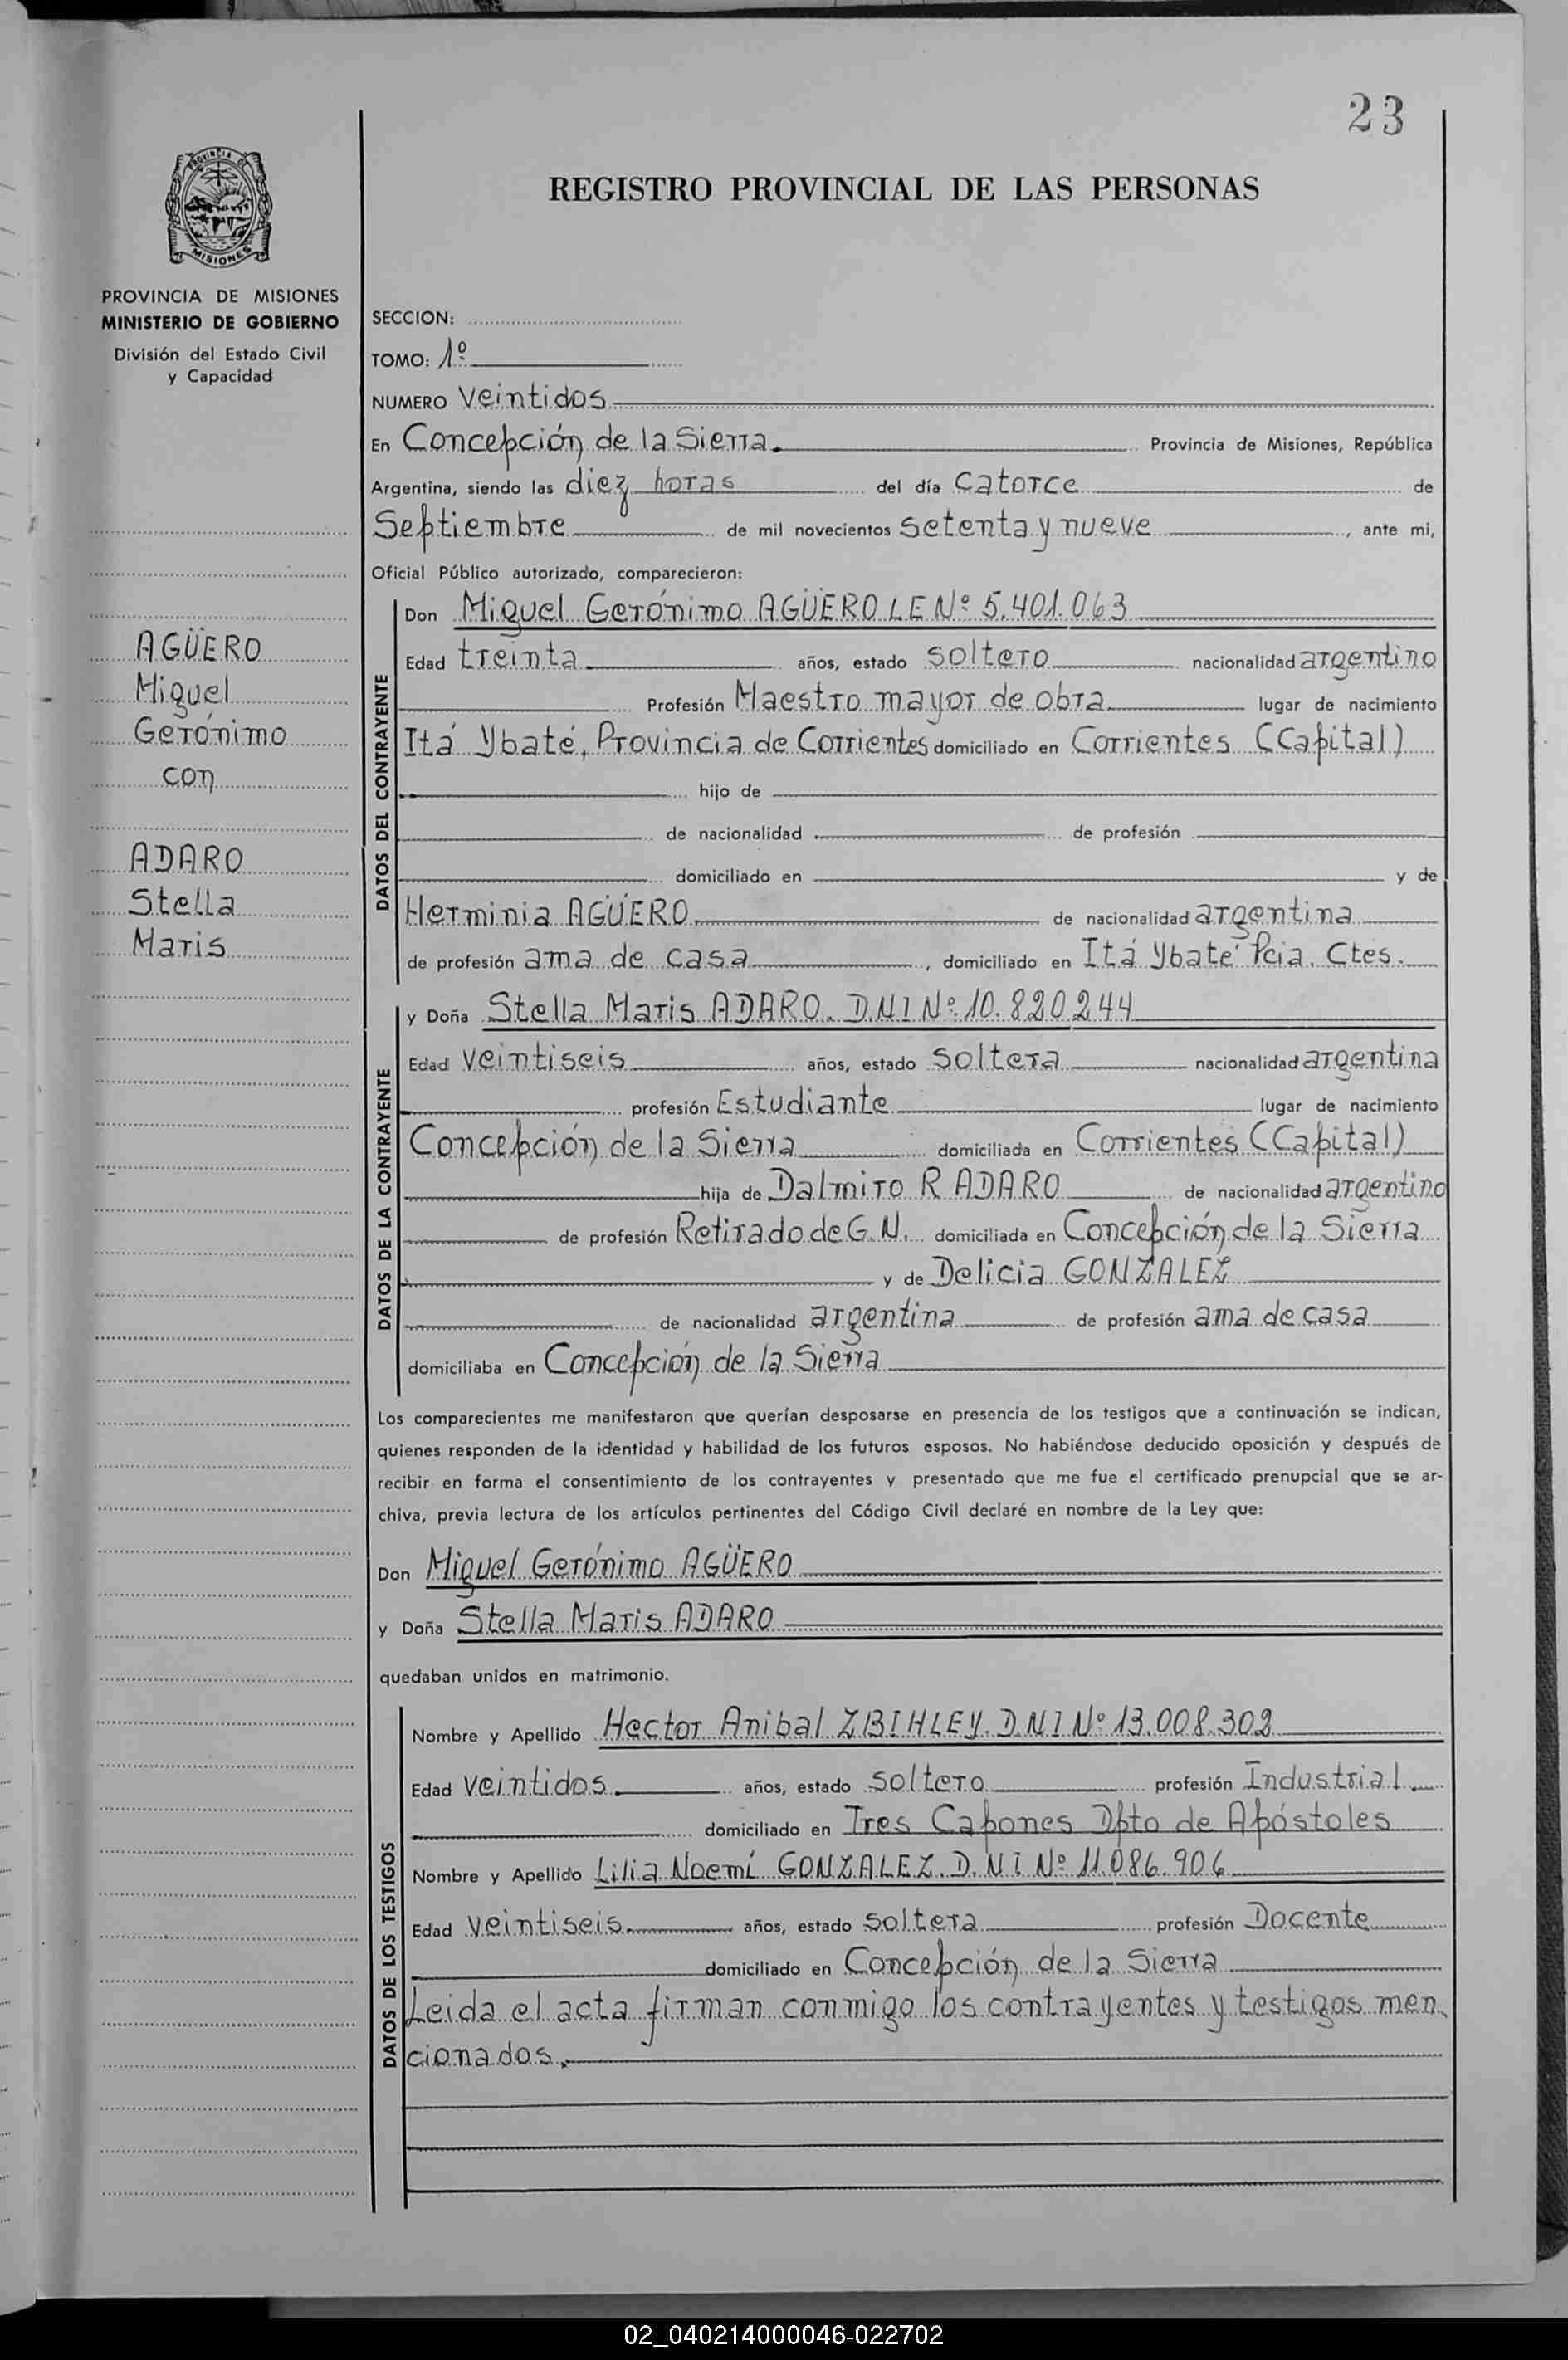 23
PROVINCIA DE
MISIONES
REGISTRO PROVINCIAL DE LAS PERSONAS
PROVINCIA DE MISIONES
MINISTERIO DE GOBIERNO
División del Estado Civil
y Capacidad
AGÜERO
Miguel
Gerónimo
con
ADARO
Stella
Maris
SECCION:
TOMO: 1º
NUMERO Veintidos
En Concepción de la Sierra. Provincia de Misiones, República
Argentina, siendo las diez horas del día Catorce de
Septiembre de mil novecientos setenta y nueve, ante mi,
Oficial Público autorizado, comparecieron:
DATOS DEL CONTRAYENTE
Don Miguel Gerónimo AGÜERO LE Nº 5.401.063
Edad treinta años, estado soltero nacionalidad argentino
Profesión Maestro mayor de obra lugar de nacimiento
Itá Ybaté, Provincia de Corrientes domiciliado en Corrientes (Capital)
hijo de
de nacionalidad de profesión
domiciliado en y de
Herminia AGÜERO de nacionalidad argentina
de profesión ama de casa, domiciliado en Itá Ybaté Pcia. Ctes.
DATOS DE LA CONTRAYENTE
y Doña Stella Maris ADARO. D.N.I Nº 10.820.244
Edad veintiseis años, estado soltera nacionalidad argentina
profesión Estudiante lugar de nacimiento
Concepción de la Sierra domiciliada en Corrientes (Capital)
hija de Dalmiro R ADARO de nacionalidad argentino
de profesión Retirado de G.N. domiciliada en Concepción de la Sierra
y de Delicia GONZALEZ
de nacionalidad argentina de profesión ama de casa
domiciliaba en Concepción de la Sierra
Los comparecientes me manifestaron que querían desposarse en presencia de los testigos que a continuación se indican,
quienes responden de la identidad y habilidad de los futuros esposos. No habiéndose deducido oposición y después de
recibir en forma el consentimiento de los contrayentes y presentado que me fue el certificado prenupcial que se ar-
chiva, previa lectura de los artículos pertinentes del Código Civil declaré en nombre de la Ley que:
Don Miguel Gerónimo AGÜERO
y Doña Stella Maris ADARO
quedaban unidos en matrimonio.
DATOS DE LOS TESTIGOS
Nombre y Apellido Hector Anibal ZBIHLEY. D.N.I Nº 13.008.302
Edad veintidos. años, estado soltero profesión Industrial.
domiciliado en Tres Capones Dpto de Apóstoles
Nombre y Apellido Lilia Noemí GONZALEZ. D.N.I Nº 11.086.906
Edad veintiseis. años, estado soltera profesión Docente
domiciliado en Concepción de la Sierra
Leida el acta firman conmigo los contrayentes y testigos men
cionados.
02_040214000046-022702